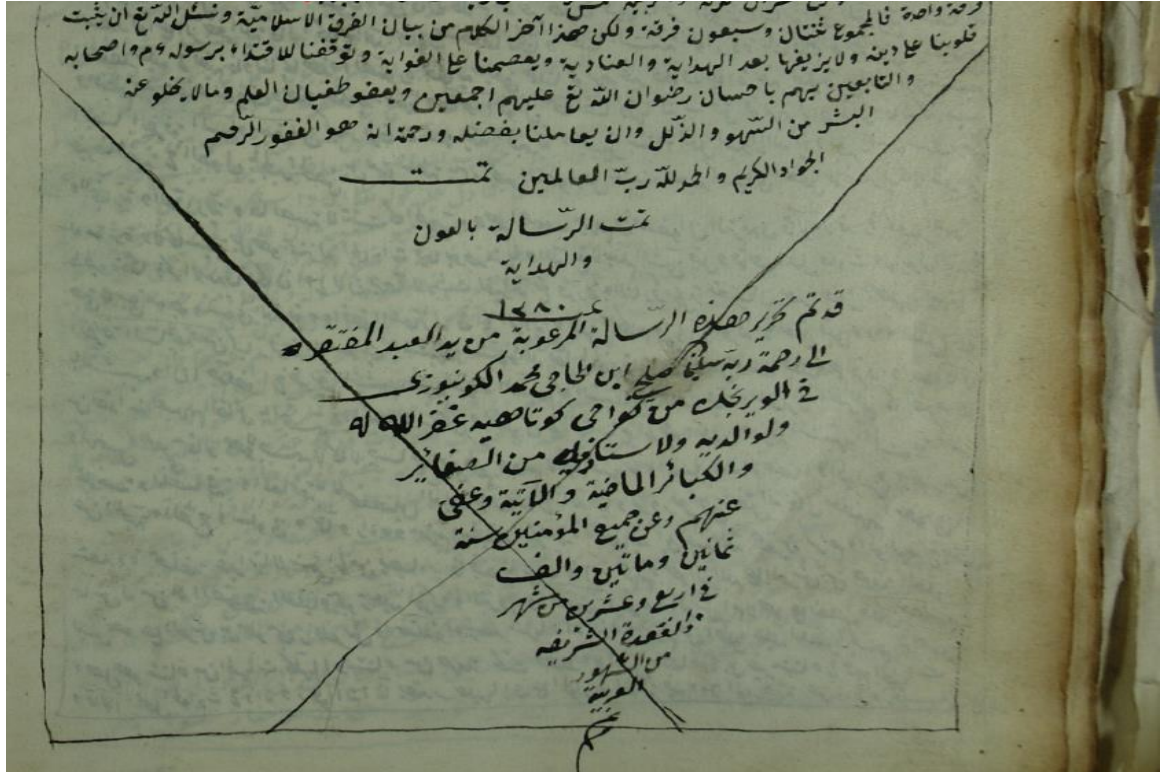 فرقة واحدة فالمجموع ثنتان وسبعون فرقة ولكن هذا آخر الكلام من بيان الفرق الاسلامية ونسئل الله تع ان يثبت
قلوبنا على دينه ولا يزيغها بعد الهداية والعنادية ويعصمنا عن الغواية ويوفقنا للاقتداء برسوله ءم واصحابه
والتابعين بهم باحسان رضوان الله تع عليهم اجمعين ويعفو طغيان القلم وما لا يخلو عن
البشر من السهو والذلل وان يعاملنا بفضله ورحمة انه هو الغفور الرحيم
الجواد الكريم والحمد لله ربّ العالمين تمت
تمت الرّسالة بالعون
والهداية
١٢٨٠
قد تم تحرير هذه الرّسالة المرغوبة من يد العبد المفتقر
الى رحمة ربه ابن الحاجى محمد
فى من نواحى كوتاهيه غفر الله له
ولوالديه ولاستاذيه من الصغاير
والكبائر الماضية والآتية وعفى
عنهم وعن جميع المؤمنين سنة
ثمانين وماتين والف
فى اربع وعشرين من شهر
ذالقعدة الشريفه
من الشهور
العربية
م